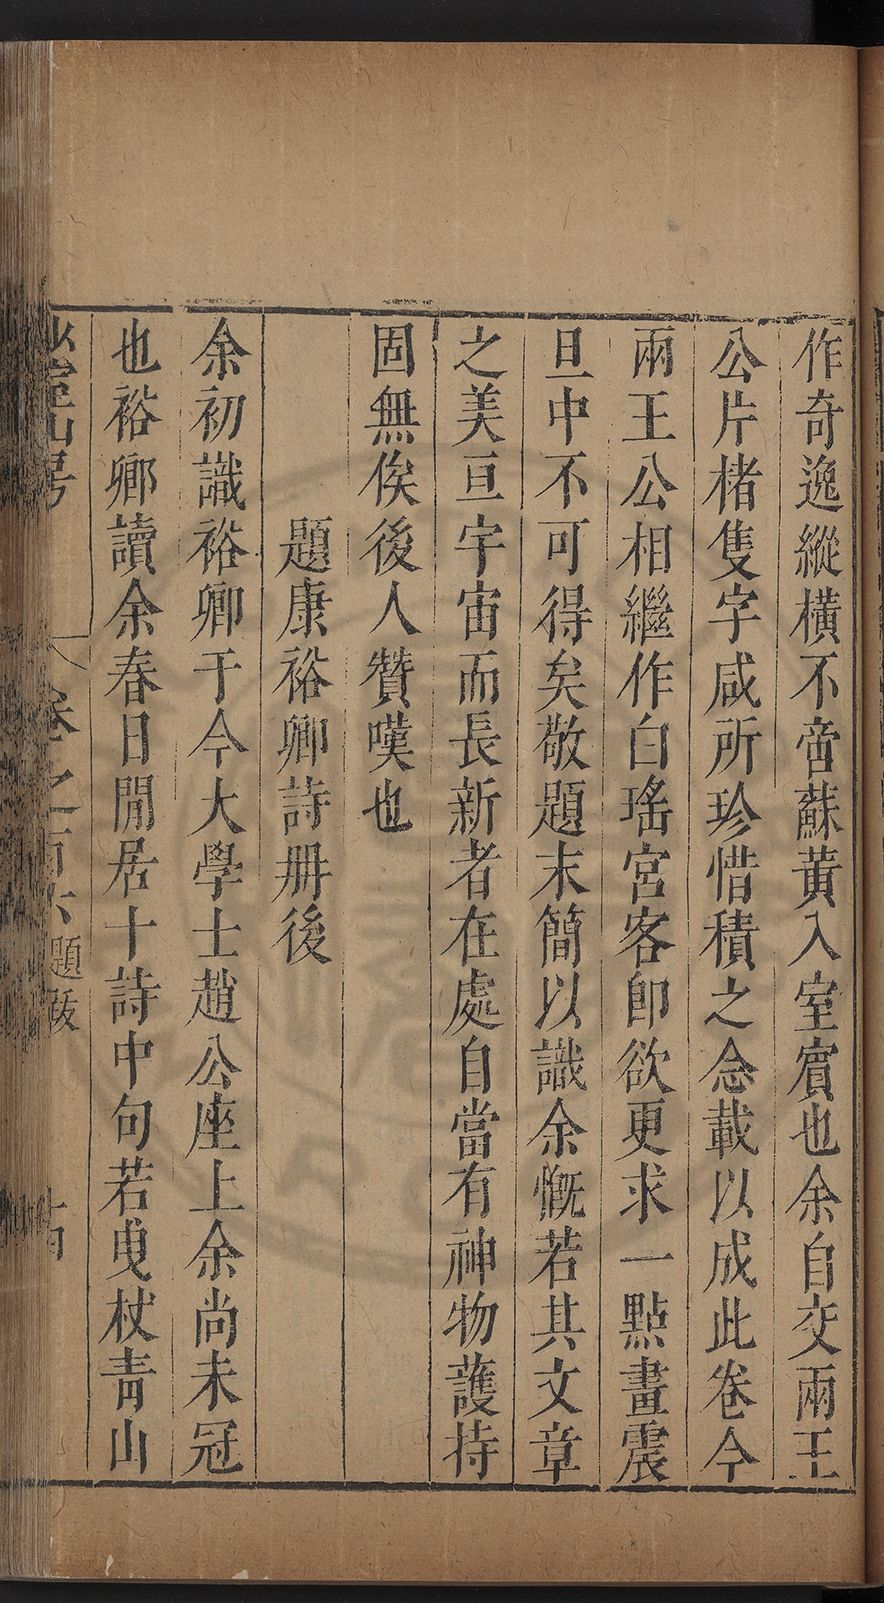 作奇逸縱橫不啻蘇黃入室賓也余自交兩王
公片楮隻字咸所珍惜積之念載以成此卷今
兩王公相繼作白瑤宮客卽欲更求一點畫震
旦中不可得矣敬題末簡以識余慨若其文章
之美亘宇宙而長新者在處自當有神物護持
固無俟後人贊嘆也
題康裕卿詩册後
余初識裕卿于今大學士趙公座上余尚未冠
也裕卿讀余春日閒居十詩中句若曳杖青山
山房
卷之百六題跋